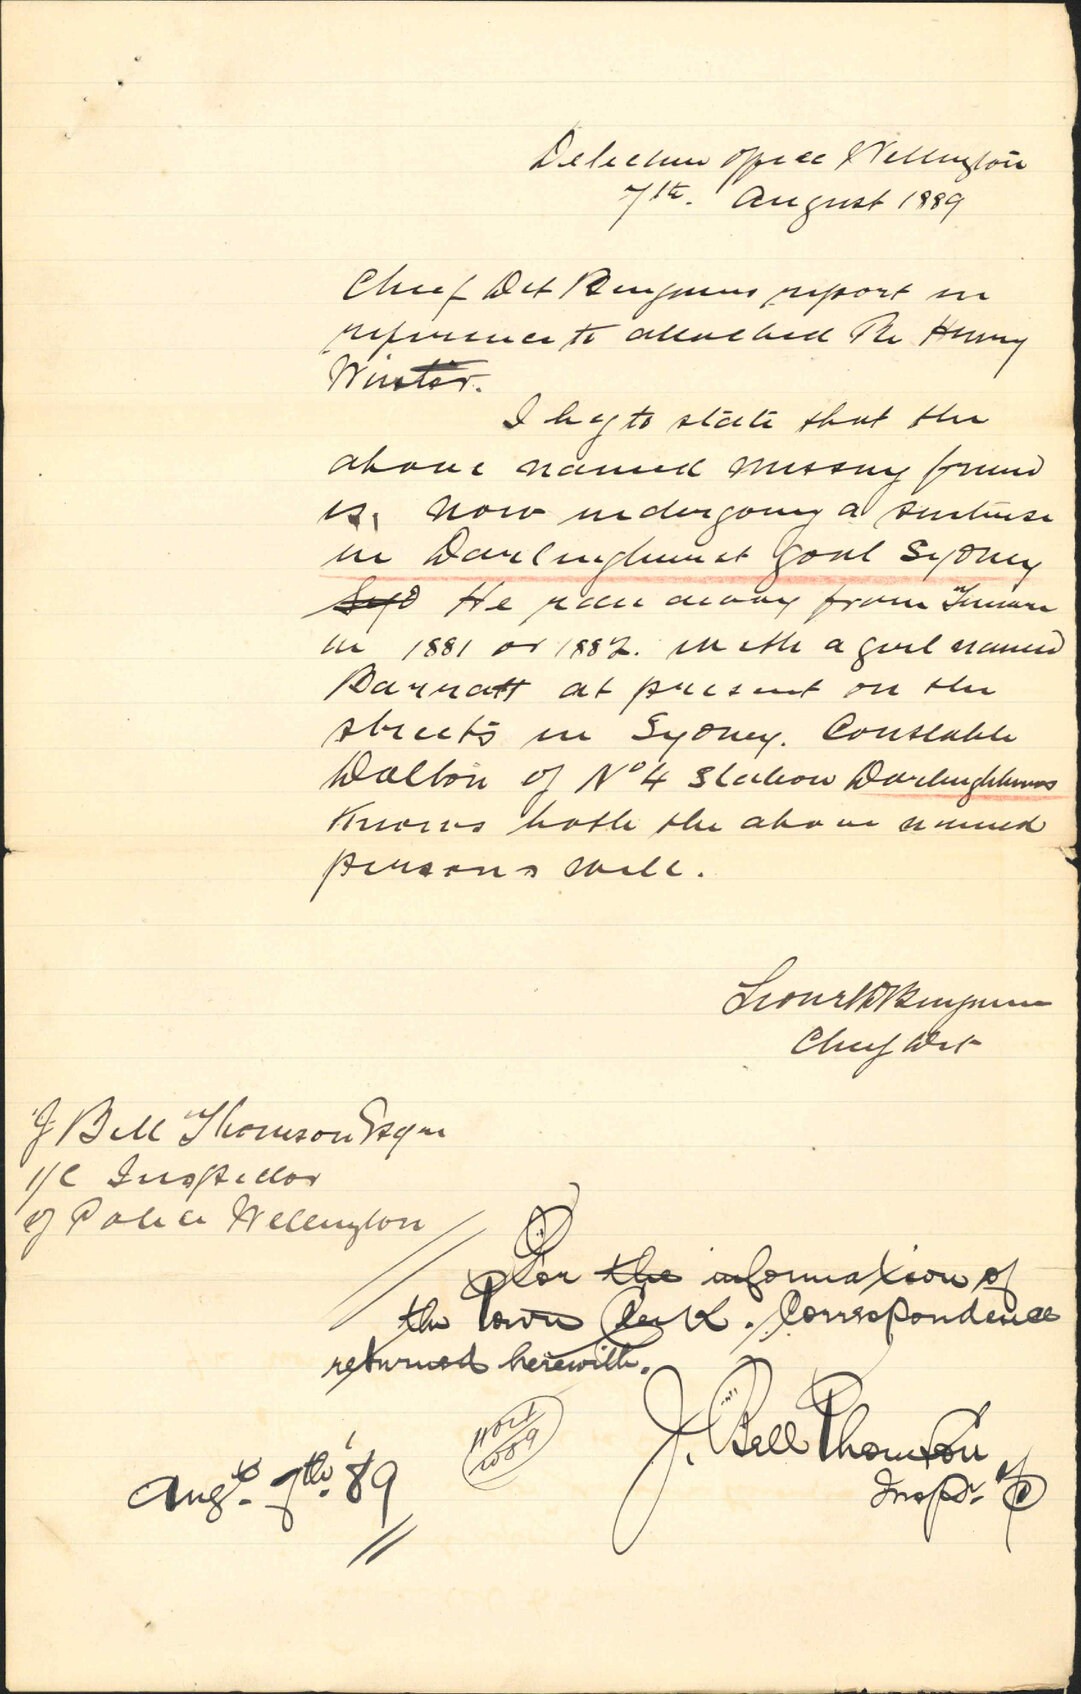 Detective office Wellington
7th. August 1889
Chief Det Benjamins report in
reference to attached Re Henry
Winter.
I beg to state that the
above named missing friend
is, now undergoing a sentence
in Darlinghurst goal Sydney
Syd He ran away from Timaru
in 1881 or 1882. with a girl named
Barratt at present on the
streets in Sydney. Constable
Walton of No 4 Station Darlinghurst
Knows both the above named
persons well.
Benjamin
Chief Det
J Bell Thomson Esqre
I/C Inspector
of Police Wellington
For the information of
the Town Clerk. Correspondence
returned herewith.
J. Bell Thomson
Inspr.
Augt. 7th. '89